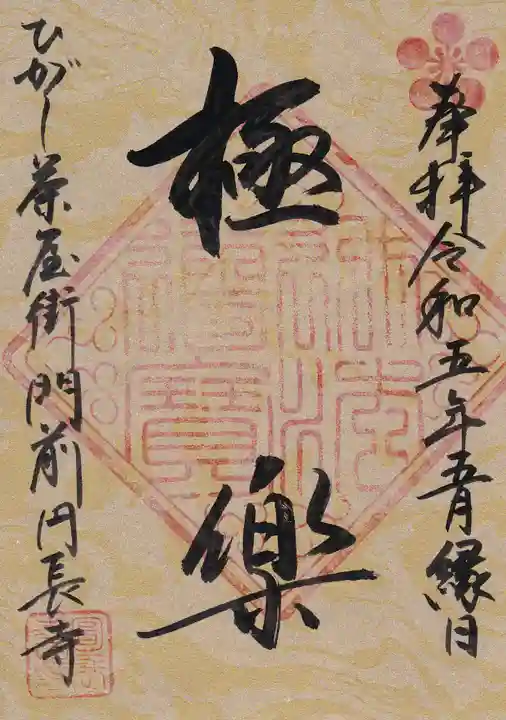 奉拝令和五年五月縁日
極樂
ひがし茶屋街門前円長寺